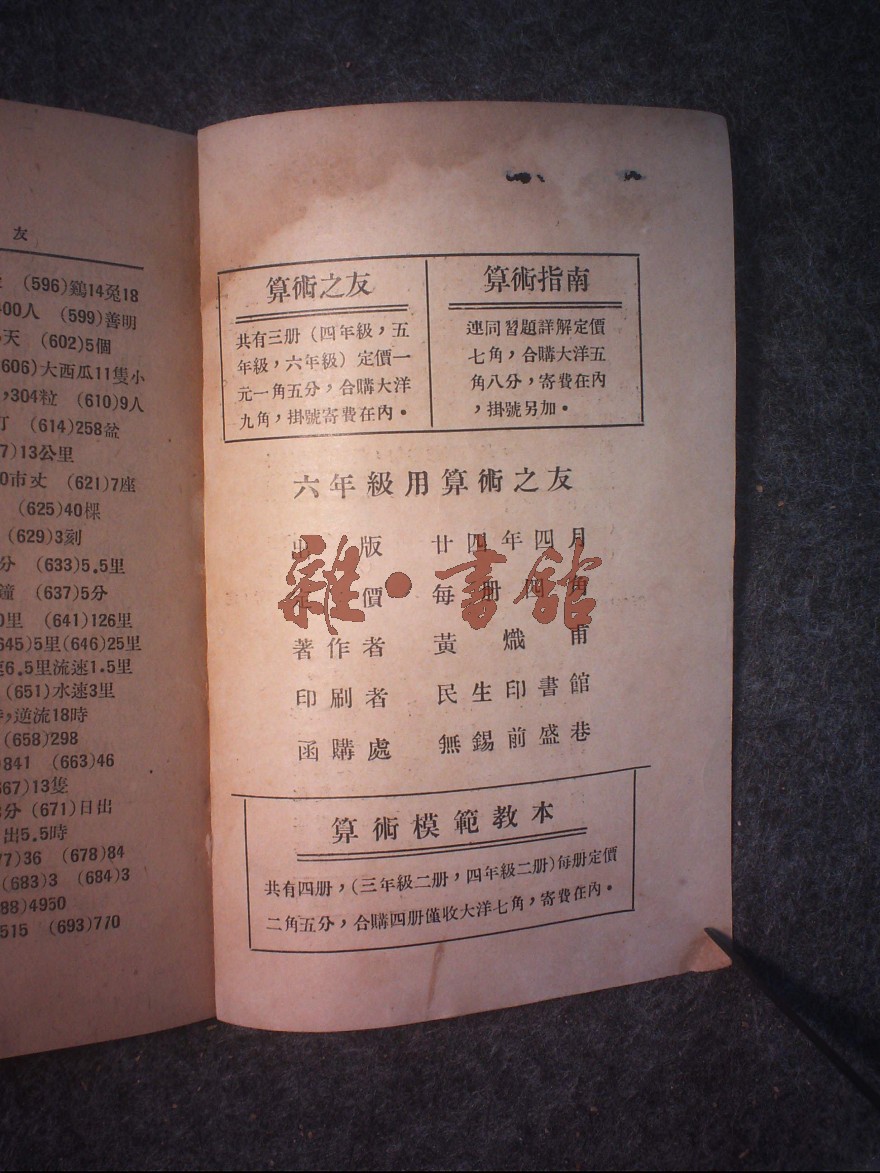 友
(596)鷄14兎18
400人 (599)善明
天 (602)5個
(606)大西瓜11隻小
,304粒 (610)9人
(614)258盆
7)13公里
0市丈 (621)7座
(625)40棵
(629)3刻
分 (633)5.5里
鐘 (637)5分
0里 (641)126里
645)5里(646)25里
6.5里流速1.5里
(651)水速3里
,逆流18時
(658)298
841 (663)46
667)13隻
分(671)日出
出5.5時
77)36 (678)84
(683)3 (684)3
88)4950
515 (693)770
算術之友
共有三册(四年級,五
年級,六年級)定價一
元一角五分,合購大洋
九角,掛號寄費在內。
算術指南
連同習題詳解定價
七角,合購大洋五
角八分,寄費在內
,掛號另加。
六年級用算術之友
出版 廿四年四月
定價 每册四角
著作者 黃熾甫
印刷者 民生印書館
函購處 無錫前盛巷
雜·書館
算術模範教本
共有四册,(三年級二册,四年級二册)每册定價
二角五分,合購四册僅收大洋七角,寄費在內。